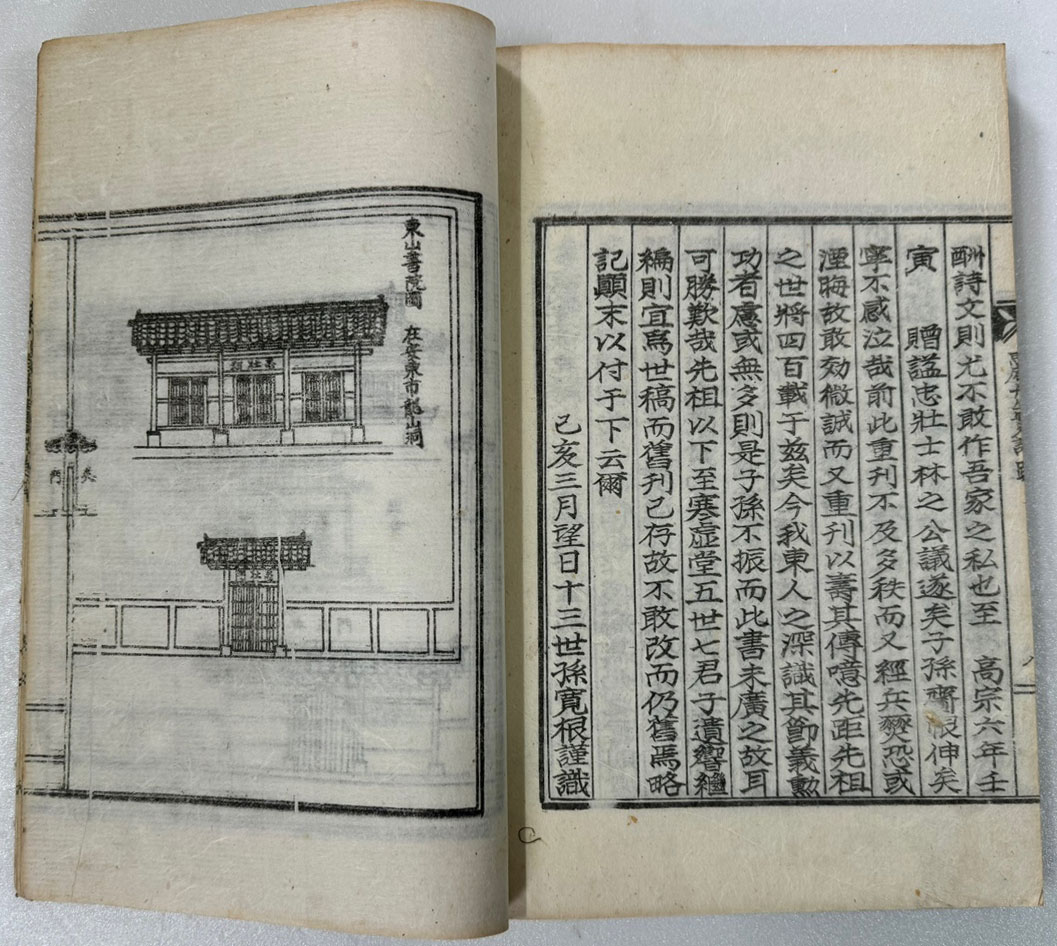 酬詩文則尤不敢作吾家之私也至　高宗六年壬
寅　贈諡忠壯士林之公議遂矣子孫齎恨伸矣
寧不感泣哉前此重刊不及多秩而又經兵燹恐或
湮晦故敢効微誠而又重刊以壽其傳噫先距先祖
之世將四百載于玆矣今我東人之深識其節義勲
功者慮或無多則是子孫不振而此書未廣之故耳
可勝歎哉先祖以下至寒虛堂五世七君子遺響繼
編則宜爲世稿而舊刊已存故不敢改而仍舊焉略
記顚末以付于下云爾
己亥三月望日十三世孫寬根謹識
東山書院圖　在安東市龍山洞
門